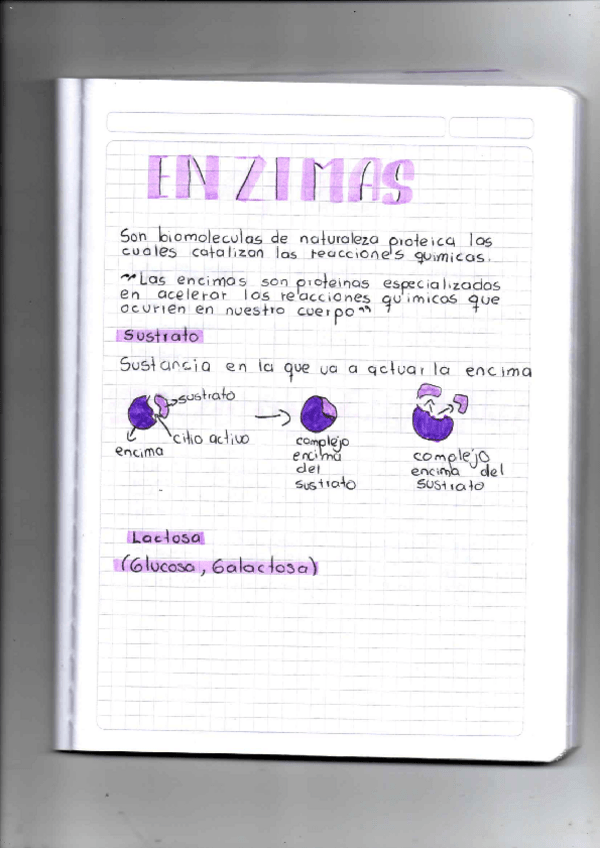 ENZIMAS
Son biomoleculas de naturaleza proteica las
cuales catalizan las reacciones quimicas.
"Las encimas son proteinas especializados
en acelerar los reacciones quimicos que
ocurren en nuestro cuerpo"
Sustrato
Sustancia en la que va a actuar la encima
sustrato
citio activo
encima
complejo
encima
del
sustrato
complejo
encima del
sustrato
Lactosa
(Glucosa, Galactosa)